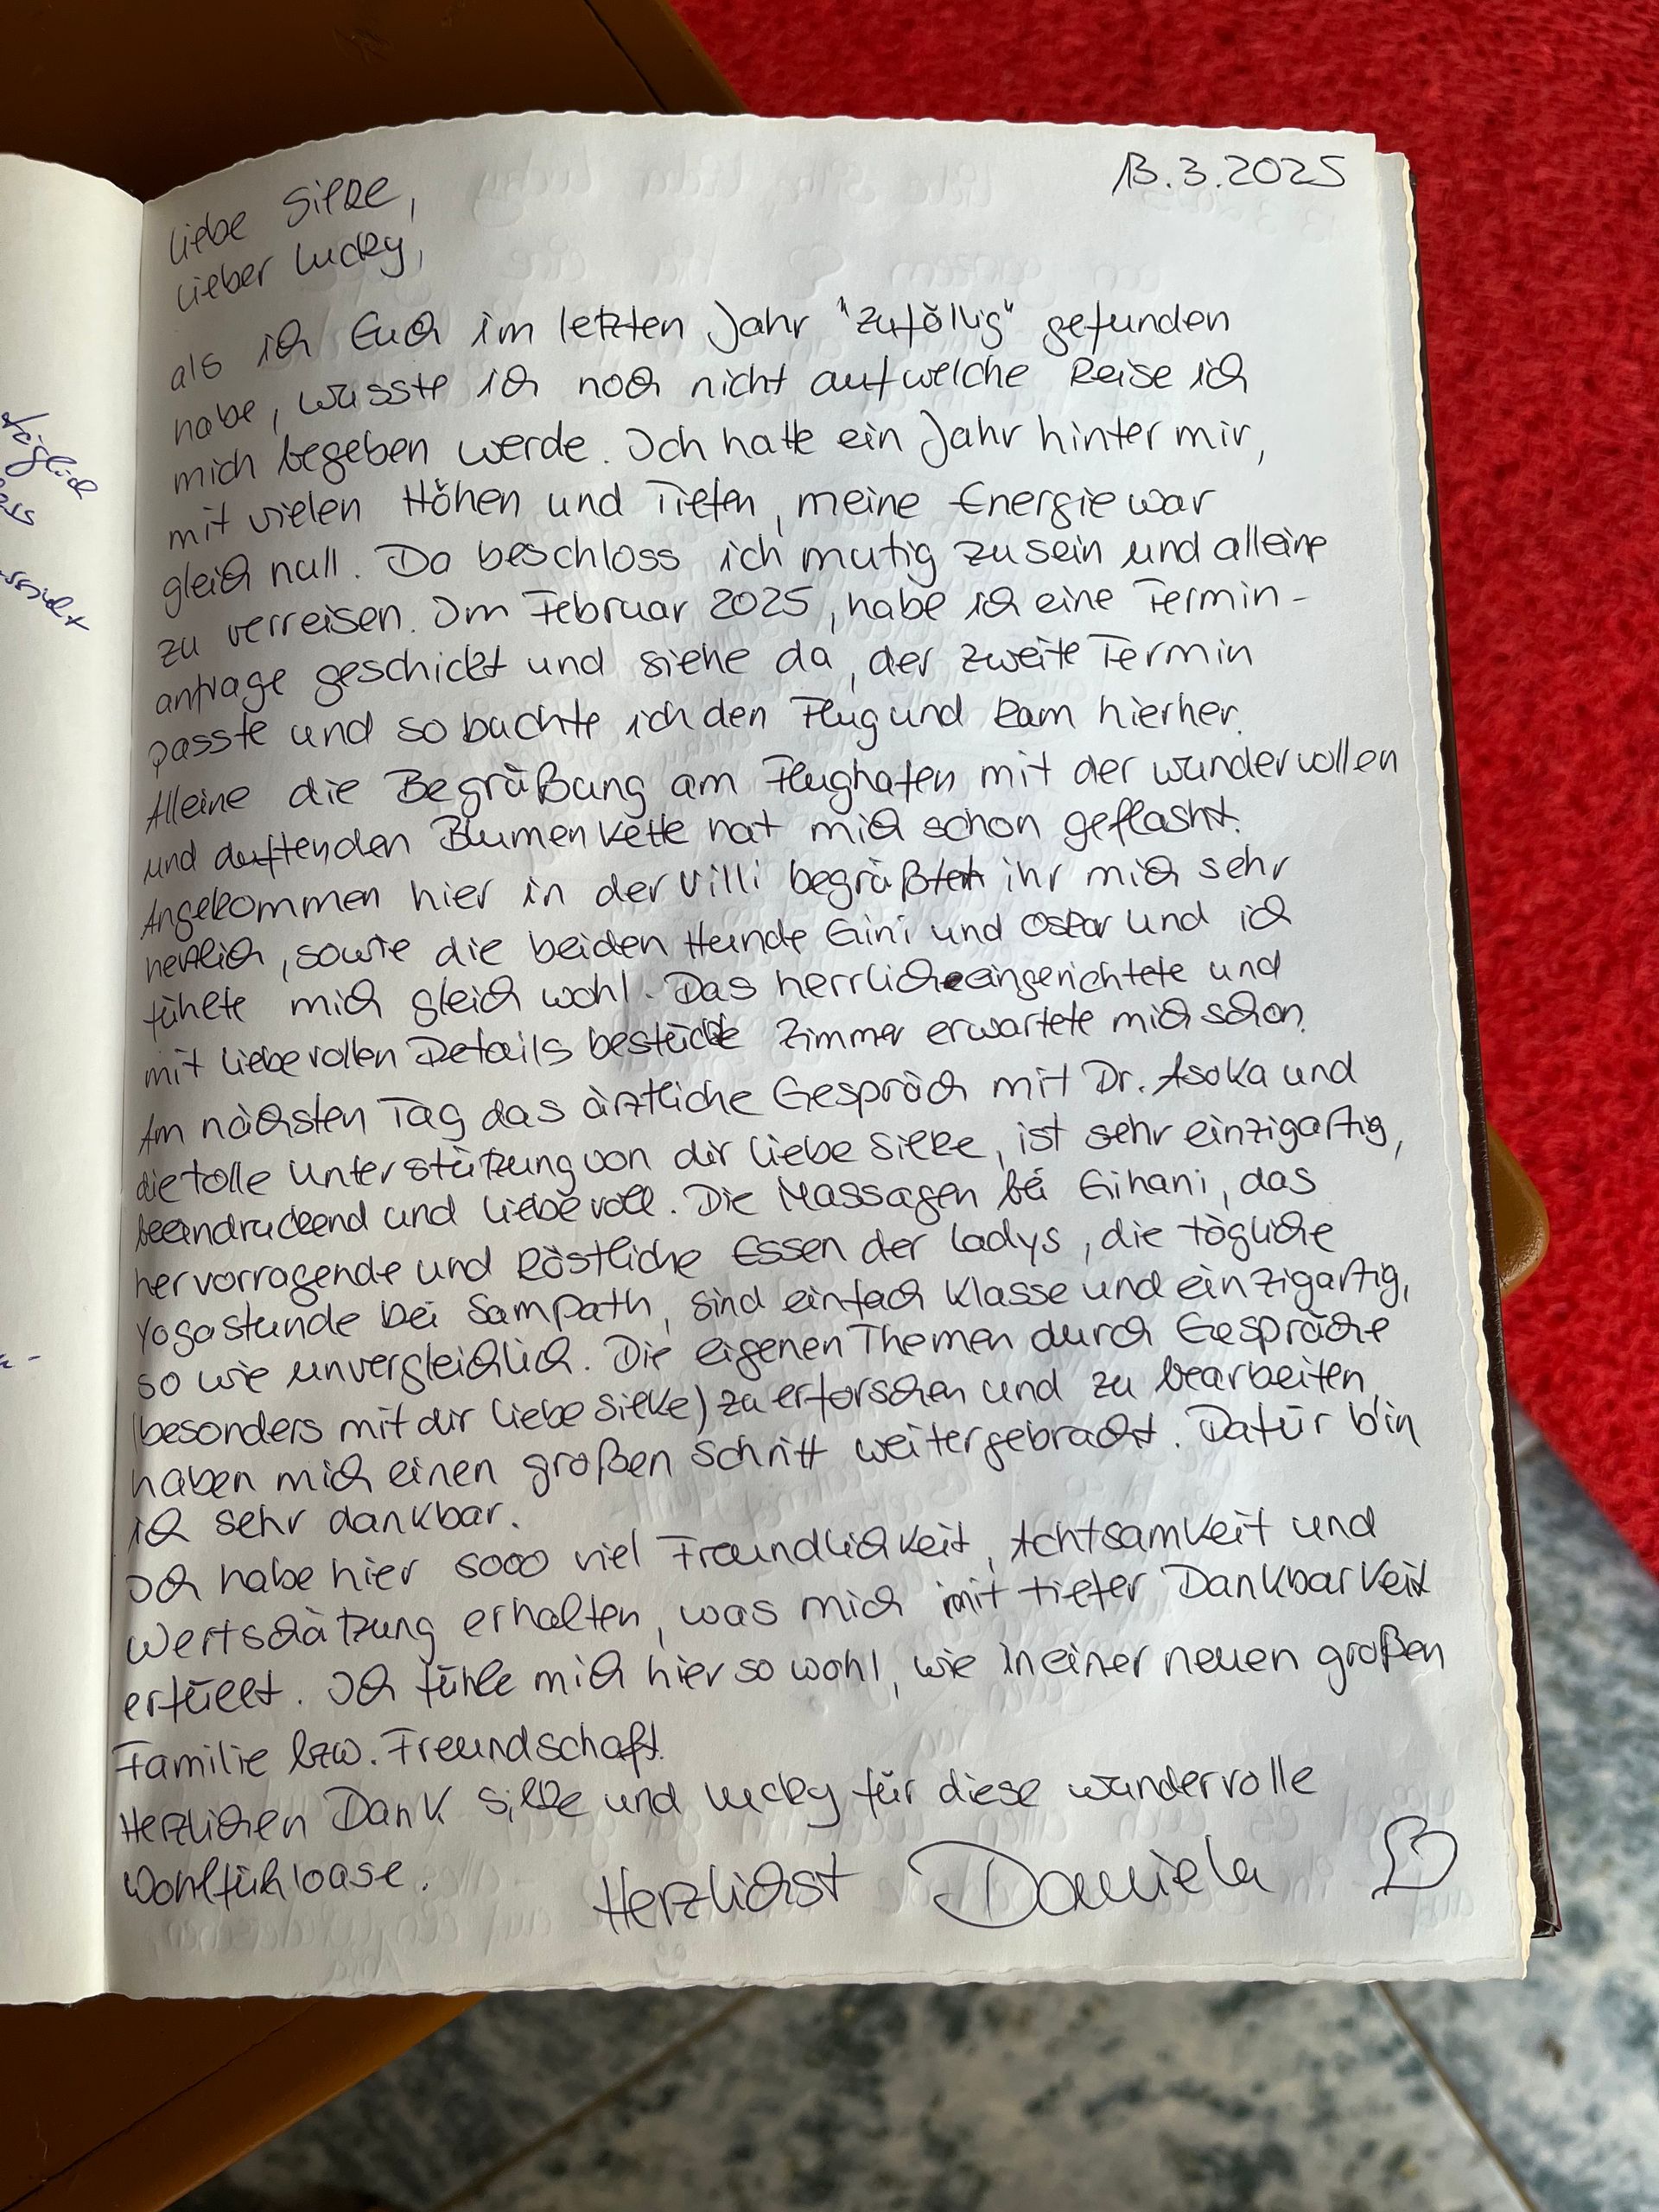 täglich
13.3.2025
Liebe Silke,
Lieber Lucky,
als ich Euch im letzten Jahr "zufällig" gefunden
habe, wusste ich noch nicht auf welche Reise ich
mich begeben werde. Ich hatte ein Jahr hinter mir,
mit vielen Höhen und Tiefen, meine Energie war
gleich null. Da beschloss ich mutig zu sein und alleine
zu verreisen. Im Februar 2025, habe ich eine Termin-
anfrage geschickt und siehe da, der zweite Termin
passte und so buchte ich den Flug und kam hierher.
Alleine die Begrüßung am Flughafen mit der wundervollen
und duftenden Blumenkette hat mich schon geflasht.
Angekommen hier in der Villi begrüßtet ihr mich sehr
herzlich, sowie die beiden Hunde Gini und Oskar und ich
fühlte mich gleich wohl. Das herrlich eingerichtete und
mit liebevollen Details bestückte Zimmer erwartete mich schon.
Am nächsten Tag das ärztliche Gespräch mit Dr. Asoka und
die tolle Unterstützung von dir liebe Silke, ist sehr einzigartig,
beeindruckend und liebevoll. Die Massagen bei Gihani, das
hervorragende und köstliche Essen der Ladys, die tägliche
Yogastunde bei Sampath, sind einfach Klasse und einzigartig,
so wie unvergleichlich. Die eigenen Themen durch Gespräche
(besonders mit dir liebe Silke) zu erforschen und zu bearbeiten,
haben mich einen großen Schritt weitergebracht. Dafür bin
ich sehr dankbar.
Ich habe hier sooo viel Freundlichkeit, Achtsamkeit und
Wertschätzung erhalten, was mich mit tiefer Dankbarkeit
erfüllt. Ich fühle mich hier so wohl, wie in einer neuen großen
Familie bzw. Freundschaft.
Herzlichen Dank Silke und Lucky für diese wundervolle
Wohlfühloase.
Herzlichst Daniela